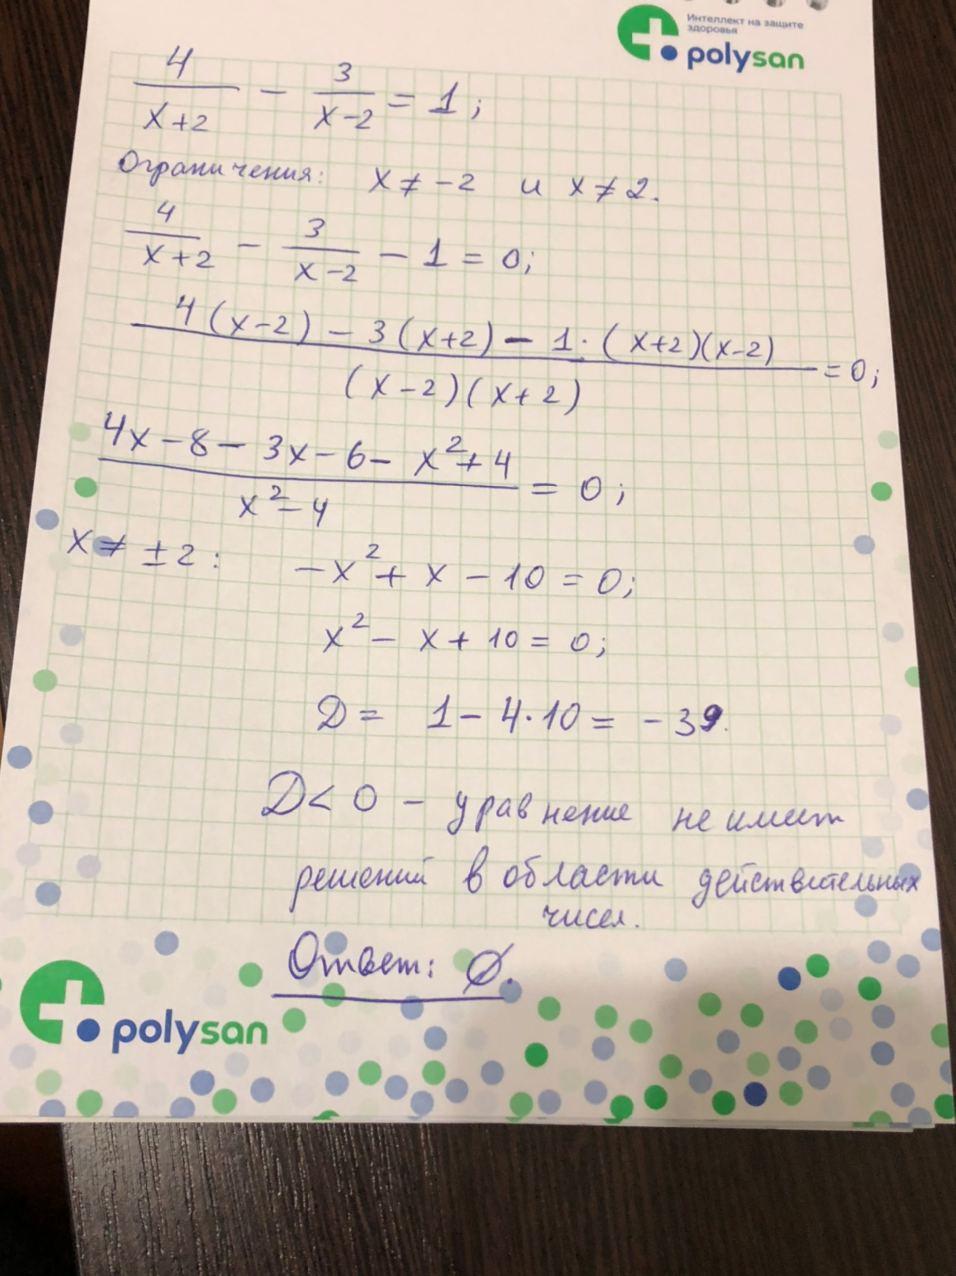 Интеллект на защите
здоровья
polysan
4/(x+2) - 3/(x-2) = 1;
Ограничения: x ≠ -2 и x ≠ 2.
4/(x+2) - 3/(x-2) - 1 = 0;
(4(x-2) - 3(x+2) - 1·(x+2)(x-2))/((x-2)(x+2)) = 0;
(4x - 8 - 3x - 6 - x² + 4)/(x² - 4) = 0;
x ≠ ±2: -x² + x - 10 = 0;
x² - x + 10 = 0;
D = 1 - 4·10 = -39.
D < 0 - уравнение не имеет
решений в области действительных
чисел.
Ответ: ∅.
polysan